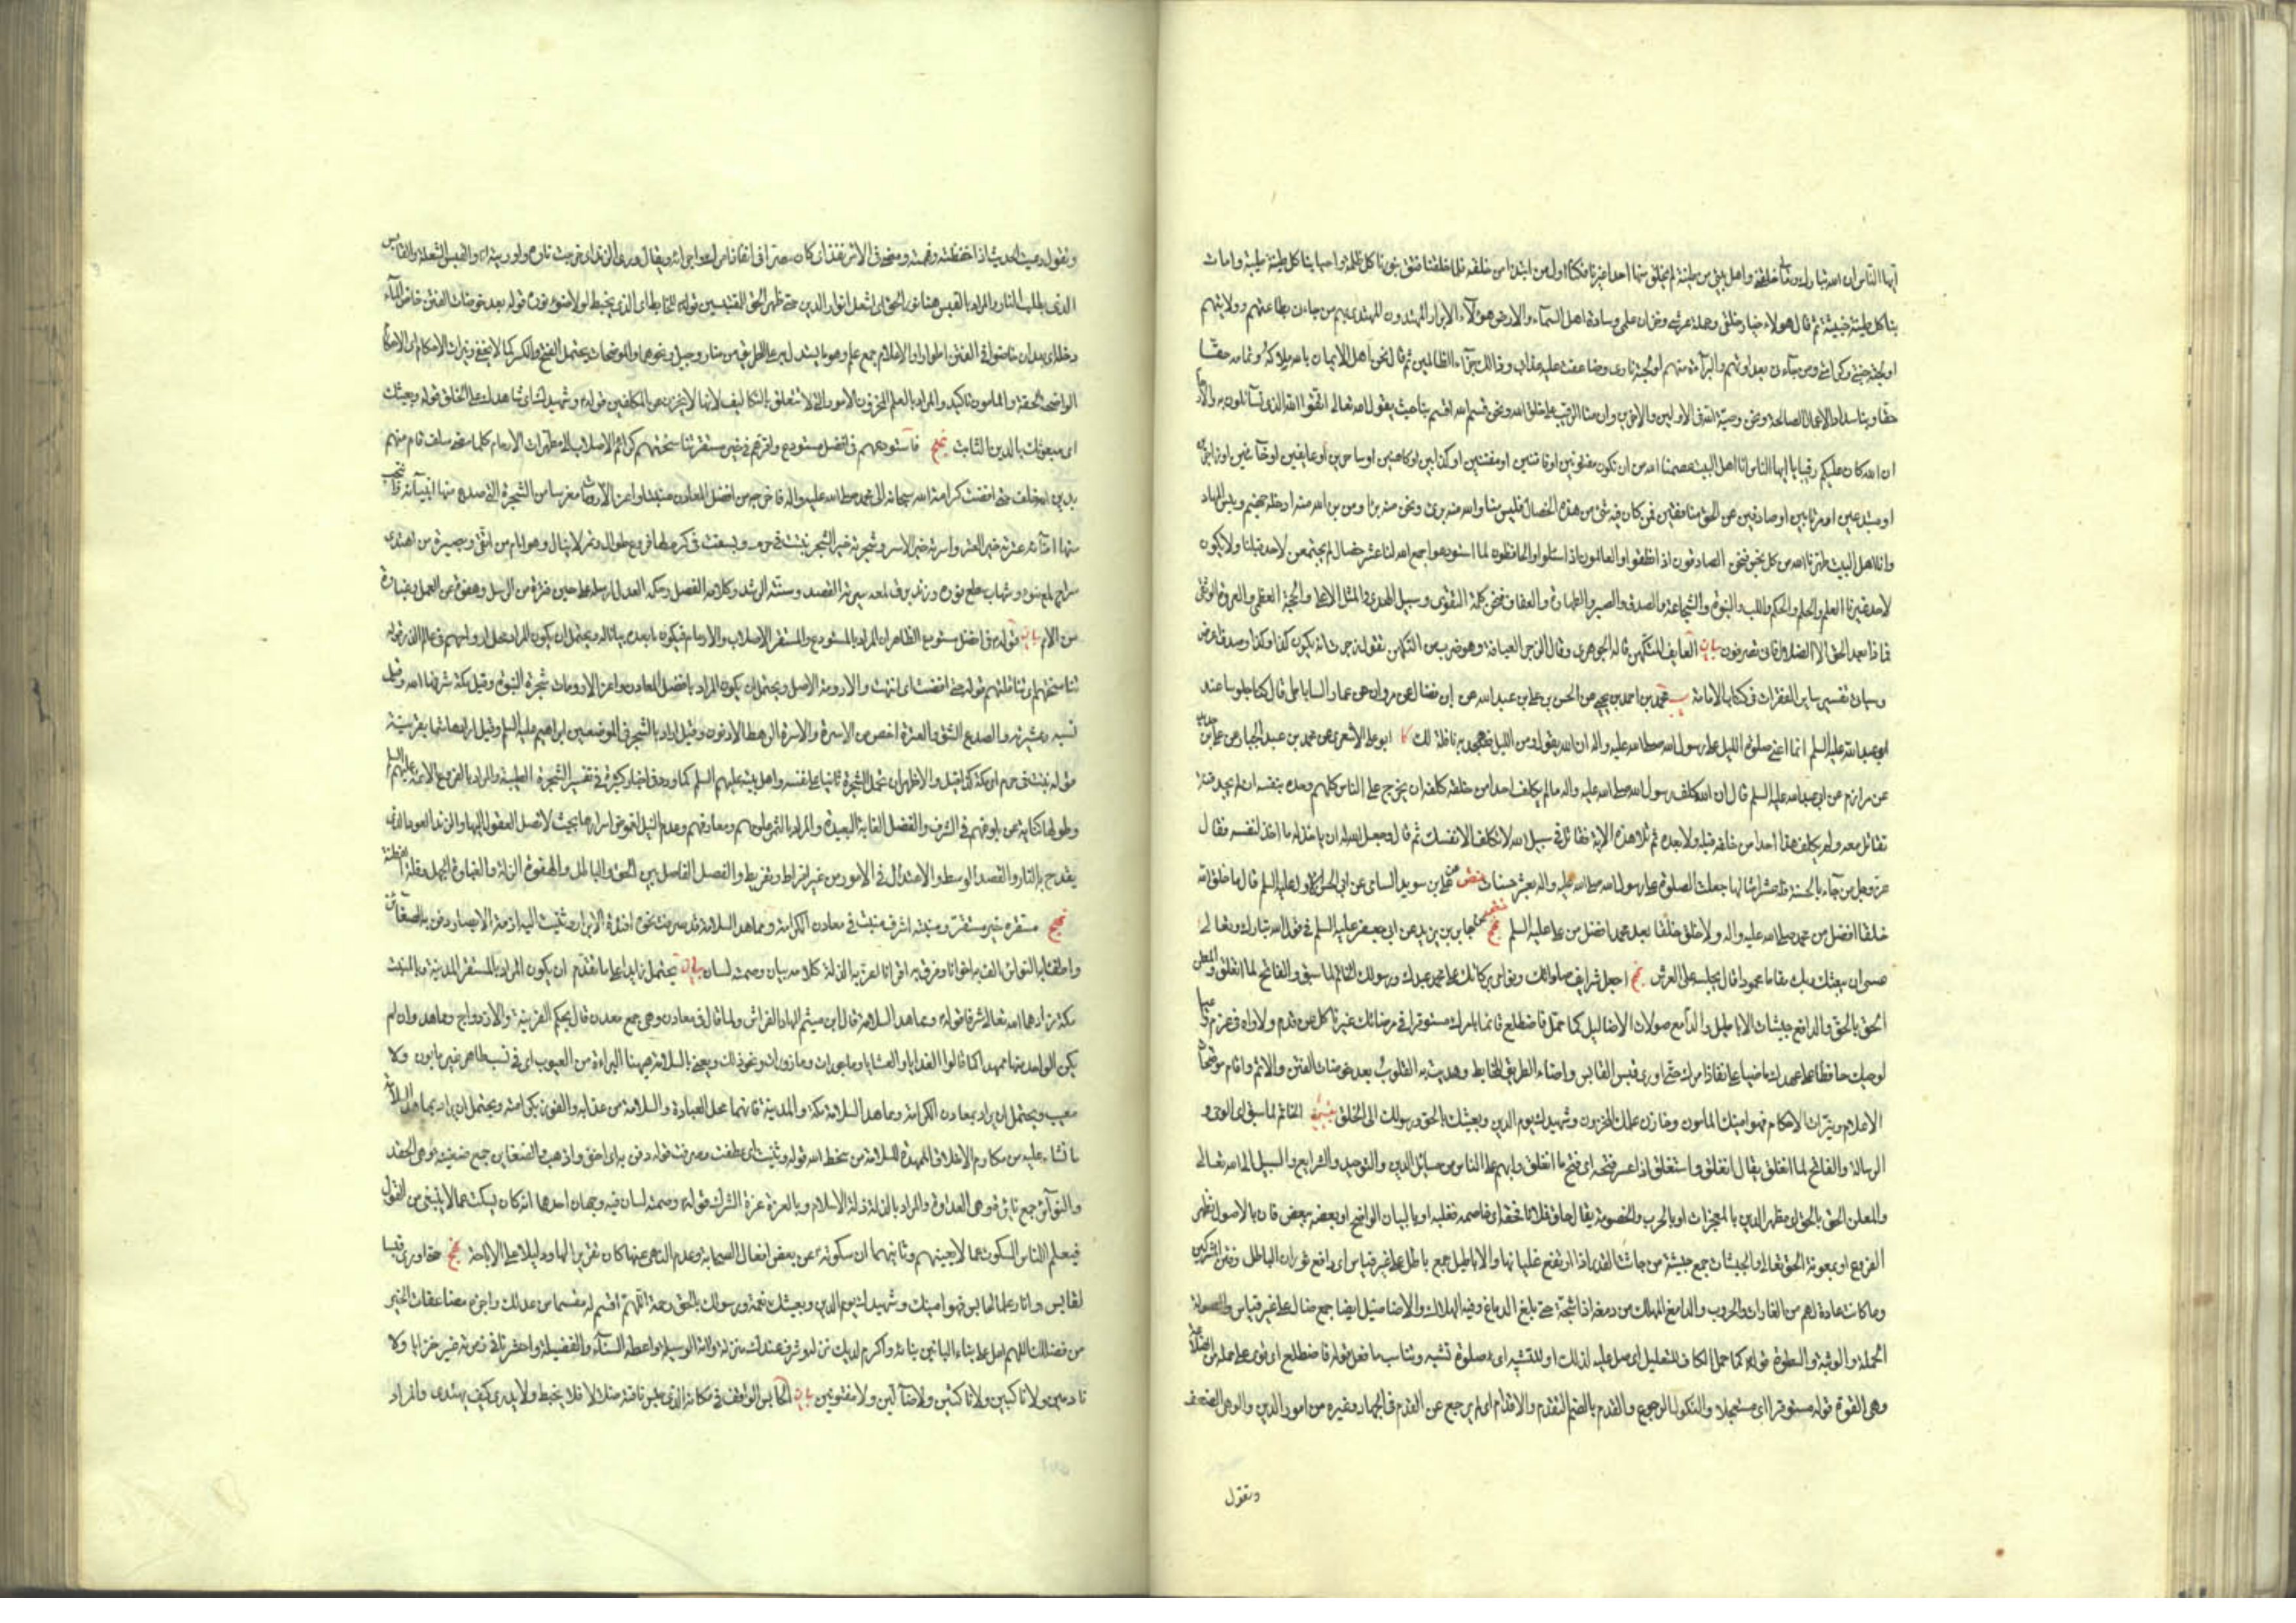 ايها الناس ان الله تبارك وتعالى خلقني واهل بيتي من طينة لم يخلق منها احدا غيرنا فكنا اول من ابتدا من خلقه فلما خلقنا فتق بنورنا كل ظلمة واحيا بنا كل طينة طيبة وامات
بنا كل طينة خبيثة ثم قال هؤلاء خيار خلقي وحملة عرشي وخزان علمي وسادة اهل السماء والارض هؤلاء الابرار المهتدون المهتدى بهم من جاءني بطاعتهم وولايتهم
اولجته جنتي وكرامتي ومن جاءني بعداوتهم والبرآءة منهم اولجته ناري وضاعفت عليه عذابي وذلك جزآء الظالمين ثم قال نحن اهل الايمان بالله ملاكه وتمامه حقا
حقا وبنا سداد الاعمال الصالحة ونحن وصية الله في الاولين والاخرين وان منا الرقيب على خلق الله ونحن قسم الله اقسم بنا حيث يقول الله تعالى اتقوا الله الذي تسآئلون به والارحام
ان الله كان عليكم رقيبا يا ايها الناس انا اهل البيت عصمنا الله من ان نكون مفتونين او فاتنين او مفتنين او كذابين او كاهنين او ساحرين او عايفين او خآئنين او زاجرين
او مبتدعين او مرتابين او صادفين عن الحق منافقين فمن كان فيه شئ من هذه الخصال فليس منا ولا نحن منه والله منه برئ ونحن منه برآء ومن برئ الله منه ادخله جهنم وبئس المهاد
وانا اهل البيت طهرنا الله من كل نجس فنحن الصادقون اذا نطقوا والعالمون اذا سئلوا والحافظون لما استودعوا جمع الله لنا عشر خصال لم يجتمعن لاحد قبلنا ولا يكون
لاحد غيرنا العلم والحلم والحكم واللب والنبوة والشجاعة والصدق والصبر والطهارة والعفاف فنحن كلمة التقوى وسبيل الهدى والمثل الاعلى والحجة العظمى والعروة الوثقى
فماذا بعد الحق الا الضلال فانى تصرفون بيان العايف المتكهن قاله الجوهري وقال الزجر العيافة وهو ضرب من التكهن تقول زجرت انه يكون كذا وكذا وصدف اعرض
وسيأتي تفسير ساير الفقرات في كتاب الامامة يب محمد بن احمد بن يحيى عن الحسن بن علي بن عبد الله عن ابن فضال عن مروان عن عمار الساباطي قال كنا جلوسا عند
ابي عبد الله عليه السلم انما اعني صلوة الليل على رسول الله صلى الله عليه واله ان الله يقول ومن الليل فتهجد به نافلة لك كا ابو علي الاشعري عن محمد بن عبد الجبار عن علي بن حديد
عن مرازم عن ابي عبد الله عليه السلم قال ان الله كلف رسول الله صلى الله عليه واله ما لم يكلف احدا من خلقه كلفه ان يخرج على الناس كلهم وحده بنفسه ان لم يجد فئة
تقاتل معه ولم يكلف هذا احدا من خلقه قبله ولا بعده ثم تلا هذه الاية فقاتل في سبيل الله لا تكلف الا نفسك ثم قال وجعل الله له ان ياخذ له ما اخذ لنفسه فقال
عز وجل من جاء بالحسنة فله عشر امثالها وجعلت الصلوة على رسول الله صلى الله عليه واله بعشر حسنات ختص عن علي بن سويد السائي عن ابي الحسن الاول عليه السلم قال ما خلق الله
خلقا افضل من محمد صلى الله عليه واله ولا خلق خلقا بعد محمد افضل من علي عليه السلم عن جابر بن يزيد عن ابي جعفر عليه السلم في قول الله تبارك وتعالى
عسى ان يبعثك ربك مقاما محمودا قال يجلسه على العرش نهج اجعل شرايف صلواتك ونوامي بركاتك على محمد عبدك ورسولك الخاتم لما سبق والفاتح لما انغلق والمعلن
الحق بالحق والدافع جيشات الاباطيل والدامغ صولات الاضاليل كما حمل فاضطلع قائما بامرك مستوفزا في مرضاتك غير ناكل عن قدم ولا واه في عزم واعيا
لوحيك حافظا على عهدك ماضيا على نفاذ امرك حتى اورى قبس القابس واضاء الطريق للخابط وهديت به القلوب بعد خوضات الفتن والاثم واقام موضحات
الاعلام ونيرات الاحكام فهو امينك المامون وخازن علمك المخزون وشهيدك يوم الدين وبعيثك بالحق ورسولك الى الخلق الخاتم لما سبق اي الوحي و
الرسالة والفاتح لما انغلق يقال انغلق واستغلق اذا عسر فتحه اي فتح ما انغلق وابهم على الناس من مسائل الدين والتوحيد والشرايع والسبيل الى الله تعالى
والمعلن الحق بالحق اي مظهر الدين بالمعجزات او بالحرب والخصومة يقال حاق فلانا فحقه اي خاصمه فغلبه او بالبيان الواضح او بعضه ببعض فان بالاصول تظهر
الفروع او بمعونة الحق تعالى والجيشات جمع جيشة من جاشت القدر اذا ارتفع غليانها والاباطيل جمع باطل على غير قياس اي دافع ثوران الباطل وفتن المشركين
وما كانت عادة لهم من الغارات والحروب والدامغ المهلك من دمغه اذا شجه حتى بلغ الدماغ وفيه الهلاك والاضاليل ايضا جمع ضال على غير قياس والصولة
الحملة والوثبة والسطوة قوله كما حمل الكاف للتعليل اي صل عليه لذلك او للتشبيه اي صلوة تشبه وتناسب ما فعل قوله فاضطلع اي قوي على حمله من الضلاعة
وهي القوة قوله مستوفزا اي مستعجلا والنكول الرجوع والقدم بالضم التقدم والاقدام اي لم يرجع عن التقدم في الجهاد وغيره من امور الدين والوهى الضعف
وتقول
وتقول وعيت الحديث اذا حفظته وفهمته ومضى في الامر نفذ اي كان مصرا في انفاذ امرك واجرائه ويقال ورى الزند اي خرجت ناره واوريته انا والقبس الشعلة والقابس
الذي يطلب النار والمراد بالقبس هنا نور الحق اي اشعل انوار الدين حتى ظهر الحق للمقتبسين قوله للخابط اي الذي يخبط لولا ضوء نوره قوله بعد خوضات الفتن خاض الماء
دخله اي بعد ان خاضوا في الفتن اطوارا والاعلام جمع علم وهو ما يستدل به على الطريق من منار وجبل ونحوهما والموضحات يحتمل الفتح والكسر كما لا يخفى ونيرات الاحكام اي الاحكام
الواضحة الحقة والمامون تاكيد والمراد بالعلم المخزون الامور التي لا تتعلق بالتكاليف لانها لا يخزن عن المكلفين قوله وشهيدك اي شاهدك على الخلق قوله وبعيثك
اي مبعوثك بالدين الثابت نهج فاستودعهم في افضل مستودع واقرهم في خير مستقر تناسختهم كرائم الاصلاب الى مطهرات الارحام كلما مضى سلف قام منهم
بدين الله خلف حتى افضت كرامة الله سبحانه الى محمد صلى الله عليه واله فاخرجه من افضل المعادن منبتا واعز الارومات مغرسا من الشجرة التي صدع منها انبيائه وانتجب
منها امنائه عترته خير العتر واسرته خير الاسر وشجرته خير الشجر نبتت في حرم وبسقت في كرم لها فروع طوال وثمر لا ينال وهو امام من اتقى وبصيرة من اهتدى
سراج لمع ضوءه وشهاب سطع نوره وزند برق لمعه سيرته القصد وسنته الرشد وكلامه الفصل وحكمه العدل ارسله على حين فترة من الرسل وهفوة عن العمل وغباوة
من الامم بيان قوله في افضل مستودع الظاهر ان المراد بالمستودع والمستقر الاصلاب والارحام فيكون ما بعده بيانا له ويحتمل ان يكون المراد محل ارواحهم في عالم الذر قوله
تناسختهم اي تناقلتهم قوله حتى افضت اي انتهت والارومة الاصل ويحتمل ان يكون المراد بافضل المعادن واعز الارومات شجرة النبوة وقيل مكة شرفها الله وقيل
نسبه وعشيرته والصدع الشق والعترة اخص من الاسرة والاسرة الرهط الادنون وقيل اراد بالشجر في الموضعين ابراهيم عليه السلم وقيل اراد هاشما بقرينة
قوله نبتت في حرم اي مكة كذا قيل والاظهر ان تحمل الشجرة ثانيا على نفسه واهل بيته عليهم السلم كما ورد في اخبار كثيرة في تفسير الشجرة الطيبة والمراد بالفروع الائمة عليهم السلم
وطولها كناية عن بلوغهم في الشرف والفضل الغاية البعيدة والمراد بالثمر علومهم ومعارفهم وعدم النيل لغموض اسرارها بحيث لا تصل العقول اليها والزند العود الذي
يقدح به النار والقصد الوسط والاعتدال في الامور من غير افراط وتفريط والفصل الفاصل بين الحق والباطل والهفوة الزلة والغباوة الجهل وقلة الفطنة
نهج مستقره خير مستقر ومنبته اشرف منبت في معادن الكرامة ومماهد السلامة قد صرفت نحوه افئدة الابرار وثنيت اليه ازمة الابصار دفن به الضغائن
واطفئ به النوائر الف به اخوانا وفرق به اقرانا اعز به الذلة كلامه بيان وصمته لسان بيان يحتمل زايدا على ما تقدم ان يكون المراد بالمستقر المدينة وبالمنبت
مكة زادهما الله تعالى شرفا قوله ومماهد السلامة قال ابن ميثم المهاد الفراش ولما قال في معادن وهي جمع معدن قال بحكم القرينة والازدواج ومماهد وان لم
يكن الواحد منها ممهدا كما قالوا الغدايا والعشايا وماجورات ومازورات ونحو ذلك ويعني بالسلامة ههنا البراءة من العيوب اي في نسب طاهر غير مابون ولا
معيب ويحتمل ان يراد بمعادن الكرامة ومماهد السلامة مكة والمدينة فانهما محل العبادة والسلامة من عذابه والفوز بكرامته ويحتمل ان يراد بمماهد السلامة
ما نشاء عليه من مكارم الاخلاق الممهدة للسلامة من سخط الله قوله وثنيت اي عطفت وصرفت قوله دفن به اي اخفى واذهب والضغاين جمع ضغينة وهي الحقد
والنوآئر جمع نائرة وهي العداوة والمراد بالذلة ذلة الاسلام وبالعزة عزة الشرك قوله وصمته لسان فيه وجهان احدهما انه كان يسكت عما لا ينبغي من القول
فيعلم الناس السكوت عما لا يعنيهم وثانيهما ان سكوته عن بعض افعال الصحابة وعدم النهي عنها كان تقريرا لها ودليلا على الاباحة نهج حتى اورى قبسا
لقابس وانار علما لحابس فهو امينك وشهيدك يوم الدين وبعيثك نعمة ورسولك بالحق رحمة اللهم اقسم له مقسما من عدلك واجزه مضاعفات الخير
من فضلك اللهم اعل على بناء البانين بناءه واكرم لديك نزله وشرف عندك منزلته واته الوسيلة واعطه السناء والفضيلة واحشرنا في زمرته غير خزايا ولا
نادمين ولا ناكبين ولا ناكثين ولا ضآلين ولا مفتونين بيان الحابس الواقف في مكانه الذي حبس ناقته ضلالا فلا يخبط ولا يدري كيف يهتدي والمراد